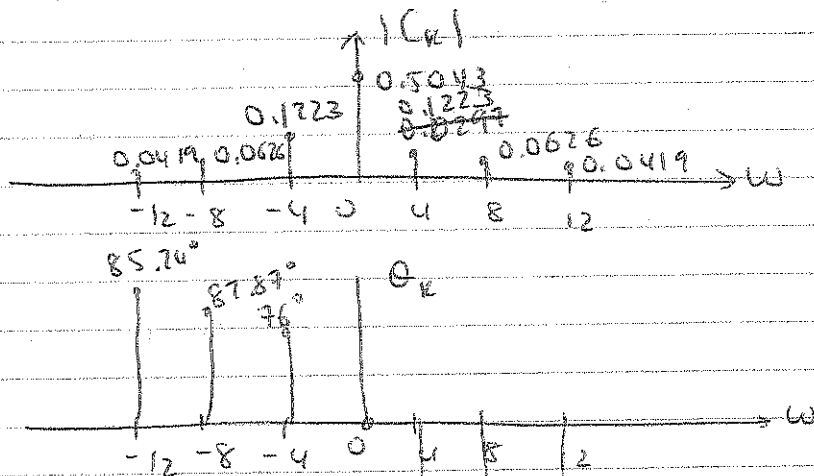 |C_k|
0.5043
0.1223 0.1223
0.0297
0.0419 0.0626 0.0626 0.0419
-12 -8 -4 0 4 8 12 ω
85.24° θ_k
76°
-12 -8 -4 0 4 8 12 ω